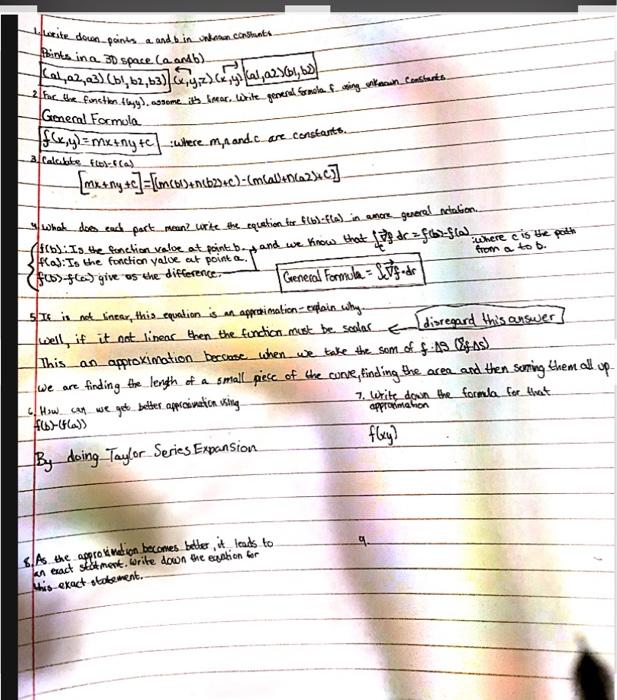 1. Write down points a and b in unknown constants
Points in a 3D space (a and b)
(a1,a2,a3) (b1,b2,b3) (x,y,z) (x,y) (a1,a2)(b1,b2)
2. For the function f(x,y), assume its linear. Write general formula f using unknown constants.
General Formula
f(x,y)=mx+ny+c :where m,n and c are constants.
3. Calculate f(b)-f(a)
[mx+ny+c]=[(m(b1)+n(b2)+c)-(m(a1)+n(a2)+c)]
4. What does each part mean? write the equation for f(b)-f(a) in a more general notation.
f(b): Is the function value at point b.
f(a): Is the function value at point a.
f(b)-f(a) give us the difference.
and we know that ∫c ∇f · dr = f(b)-f(a) :where c is the path
from a to b.
General Formula = ∫c ∇f · dr
5. If is not linear, this equation is an approximation - explain why.
well, if it not linear then the function must be scalar ← disregard this answer
This an approximation because when we take the sum of f·ΔS (Σf ΔS)
we are finding the length of a small piece of the curve, finding the area and then suming them all up.
6. How can we get better approximation using
f(b)-(f(a))
By doing Taylor Series Expansion
7. Write down the formula for that
approximation
f(xy)
8. As the approximation becomes better, it leads to
an exact statment. Write down the equation for
this exact statement.
9.